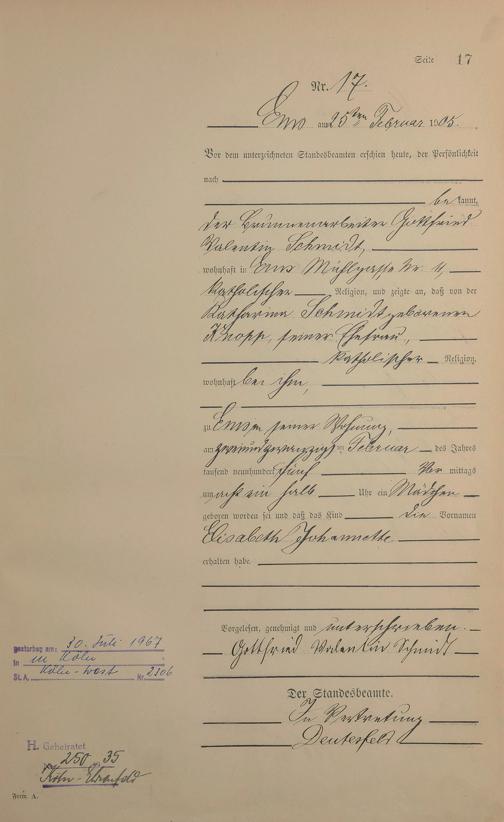 Seite 17
Nr. 17.
Ems am 25ten Februar 1905.
Vor dem unterzeichneten Standesbeamten erschien heute, der Persönlichkeit
nach
bekannt,
der Brunnenarbeiter Gottfried
Valentin Schmidt,
wohnhaft in Ems Mühlgasse Nr. 11,
katholischer Religion, und zeigte an, daß von der
Katharina Schmidt geborenen
Knopp, seiner Ehefrau,
katholischer Religion,
wohnhaft bei ihm,
zu Ems in seiner Wohnung,
am zweiundzwanzigsten Februar des Jahres
tausend neunhundert fünf Vor mittags
um acht ein halb Uhr ein Mädchen
geboren worden sei und daß das Kind die Vornamen
Elisabeth Johannette
erhalten habe.
Vorgelesen, genehmigt und unterschrieben.
Gottfried Valentin Schmidt
Der Standesbeamte.
In Vertretung
gestorben am: 30. Juli 1967
in Köln
St. A. Köln-West Nr. 2306
H. Geheiratet
250 35
Köln-Ehrenfeld
Form. A.